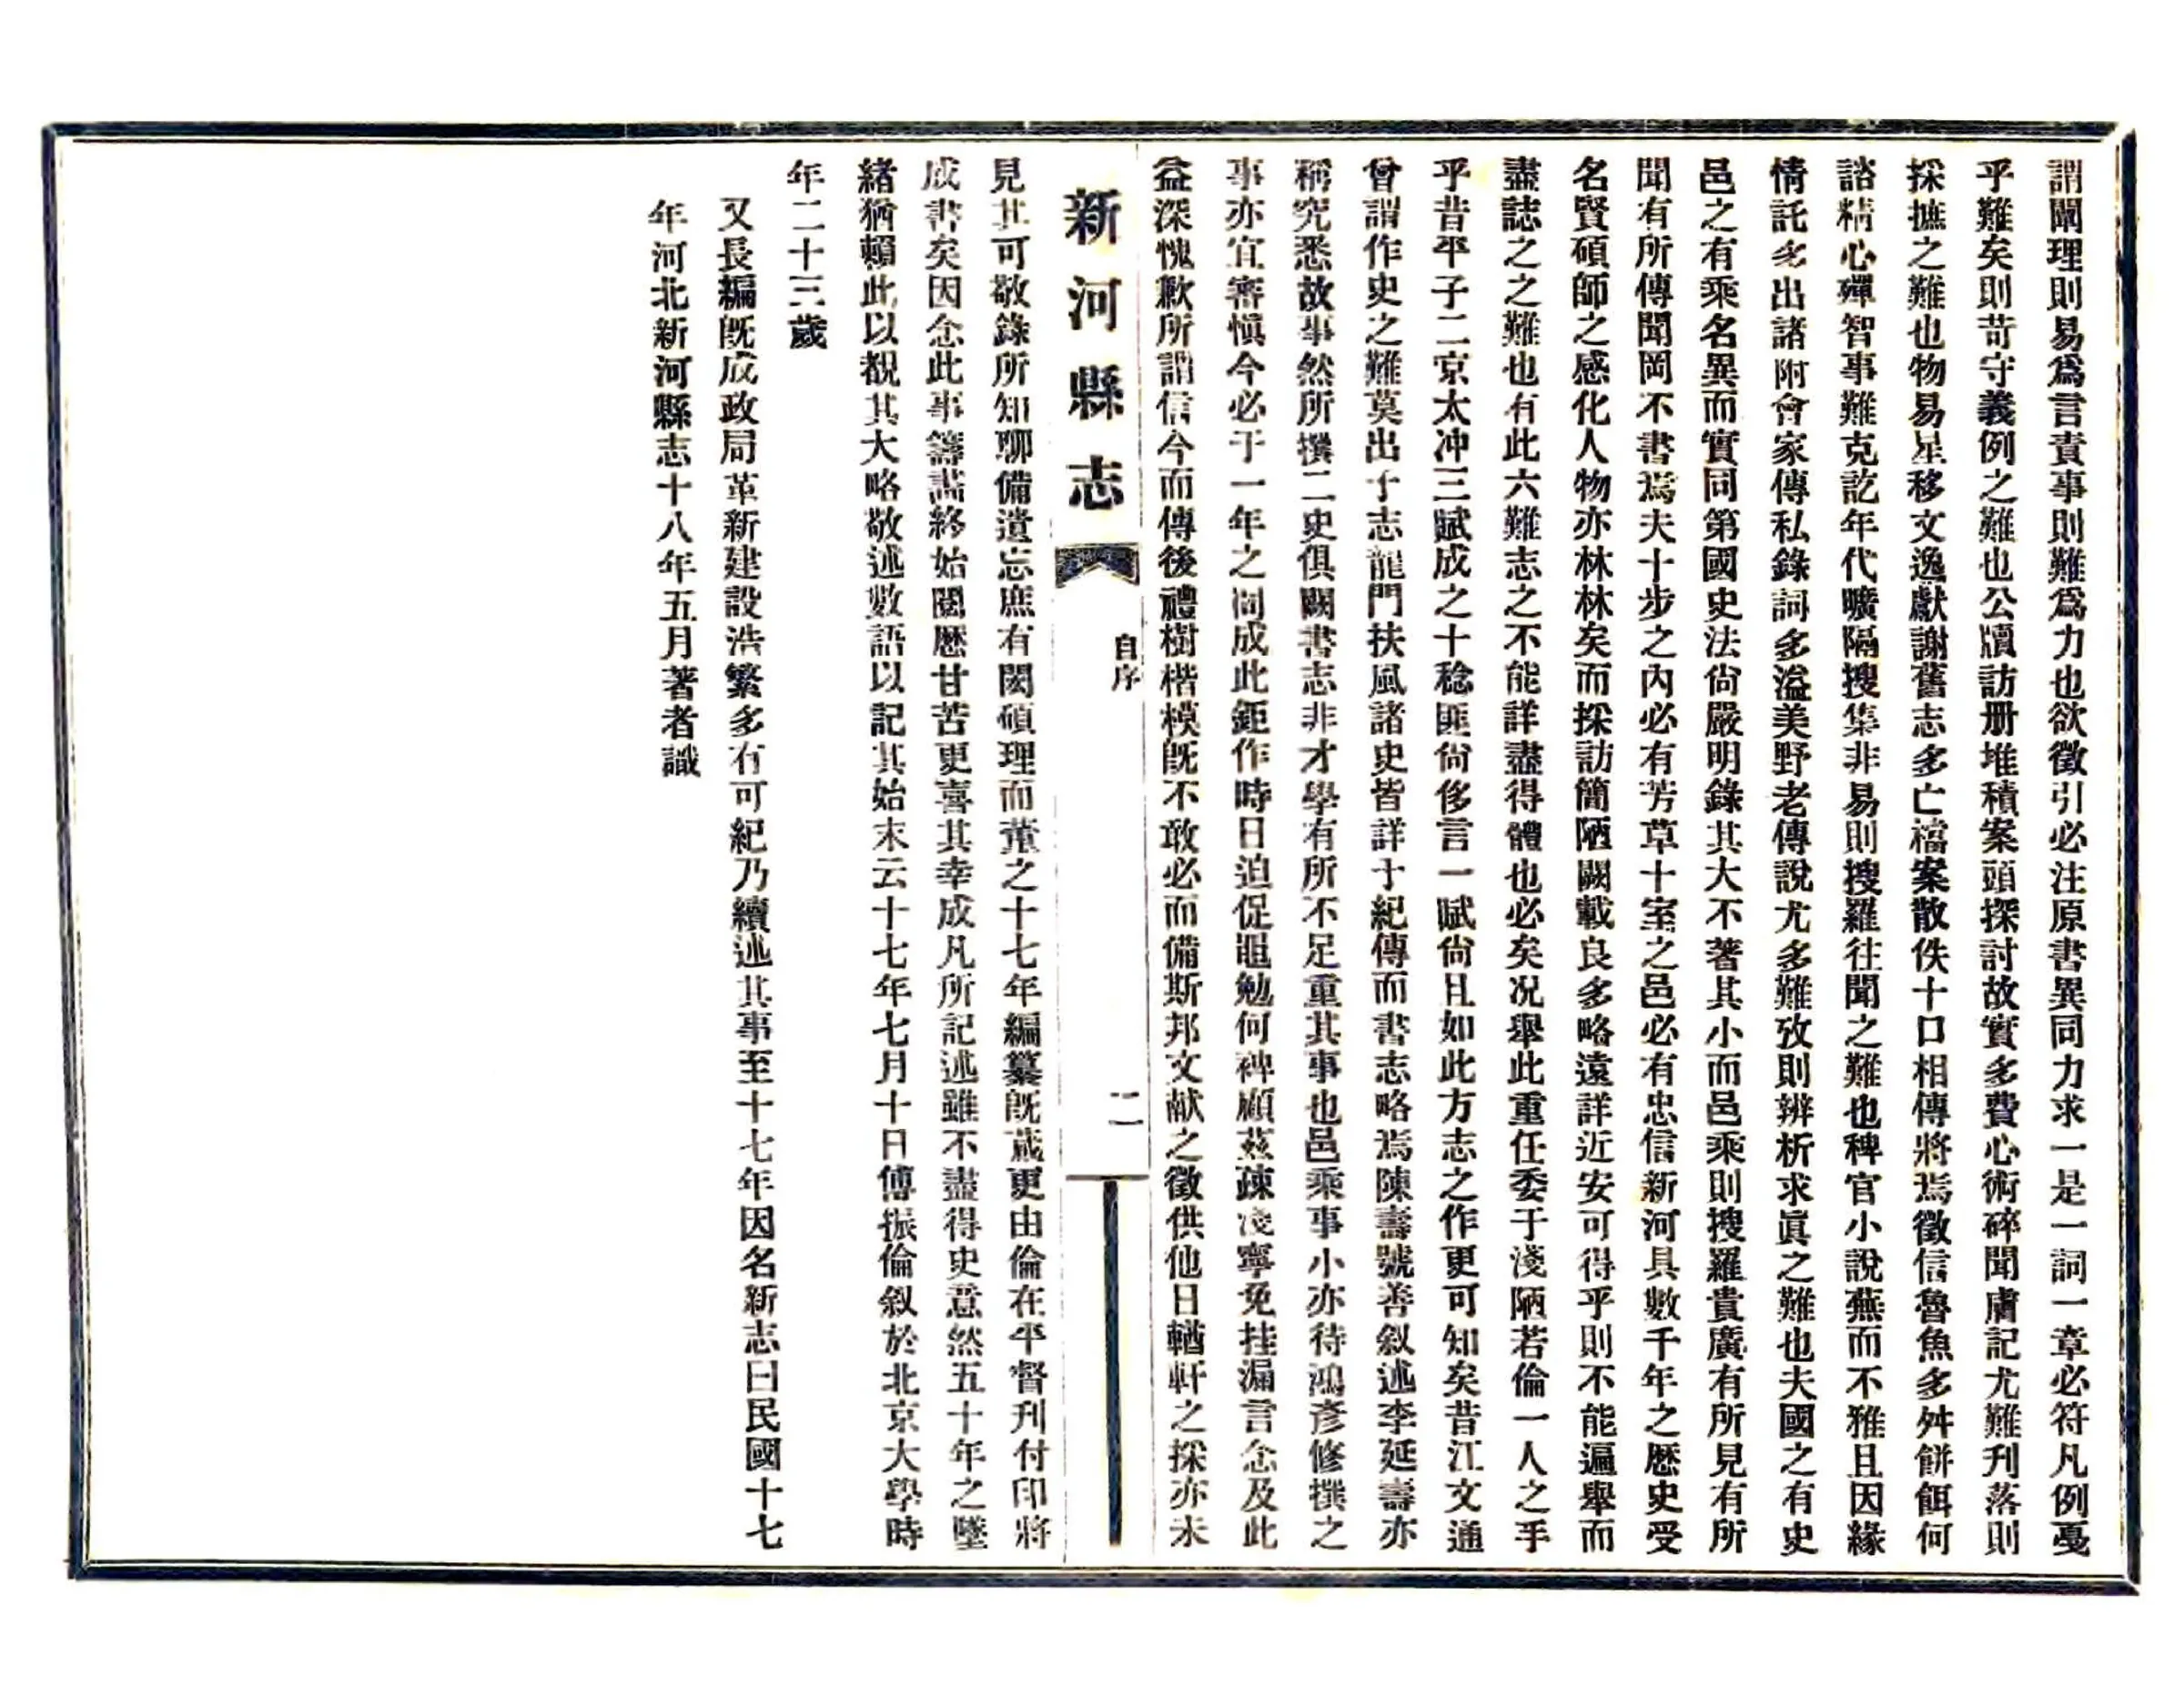 謂闡理則易爲言責事則難爲力也欲徵引必注原書異同力求一是一詞一章必符凡例戞
乎難矣則苛守義例之難也公牘訪册堆積案頭探討故實多費心術碎聞庸記尤難刋落則
採摭之難也物易星移文逸獻謝舊志多亡檔案散佚十口相傳將焉徵信魯魚多舛餅餌何
諮精心殫智事難克訖年代曠隔搜集非易則搜羅往聞之難也稗官小說蕪而不雅且因緣
情託多出諸附會家傳私錄詞多溢美野老傳說尤多難攷則辨析求眞之難也夫國之有史
邑之有乘名異而實同第國史法尙嚴明錄其大不著其小而邑乘則搜羅貴廣有所見有所
聞有所傳聞罔不書焉夫十步之內必有芳草十室之邑必有忠信新河具數千年之歷史受
名賢碩師之感化人物亦林林矣而採訪簡陋闕載良多略遠詳近安可得乎則不能遍舉而
盡誌之之難也有此六難志之不能詳盡得體也必矣况舉此重任委于淺陋若倫一人之手
乎昔平子二京太冲三賦成之十稔匪尙侈言一賦尙且如此方志之作更可知矣昔江文通
曾謂作史之難莫出于志龍門扶風諸史皆詳于紀傳而書志略焉陳壽號善叙述李延壽亦
稱究悉故事然所撰二史俱闕書志非才學有所不足重其事也邑乘事小亦待鴻彥修撰之
事亦宜審愼今必于一年之間成此鉅作時日迫促黽勉何裨顧茲疎淩寧免挂漏言念及此
益深愧歉所謂信今而傳後禮樹楷模旣不敢必而備斯邦文献之徵供他日輶軒之採亦未
新河縣志
自序
二
見其可敬錄所知聊備遺忘庶有閎碩理而董之十七年編纂旣蕆更由倫在平督刋付印將
成書矣因念此事籌畫終始閱歷甘苦更喜其幸成凡所記述雖不盡得史意然五十年之墜
緒猶賴此以覩其大略敬述數語以記其始末云十七年七月十日傅振倫叙於北京大學時
年二十三歲
又長編旣成政局革新建設浩繁多有可紀乃續述其事至十七年因名新志曰民國十七
年河北新河縣志十八年五月著者識